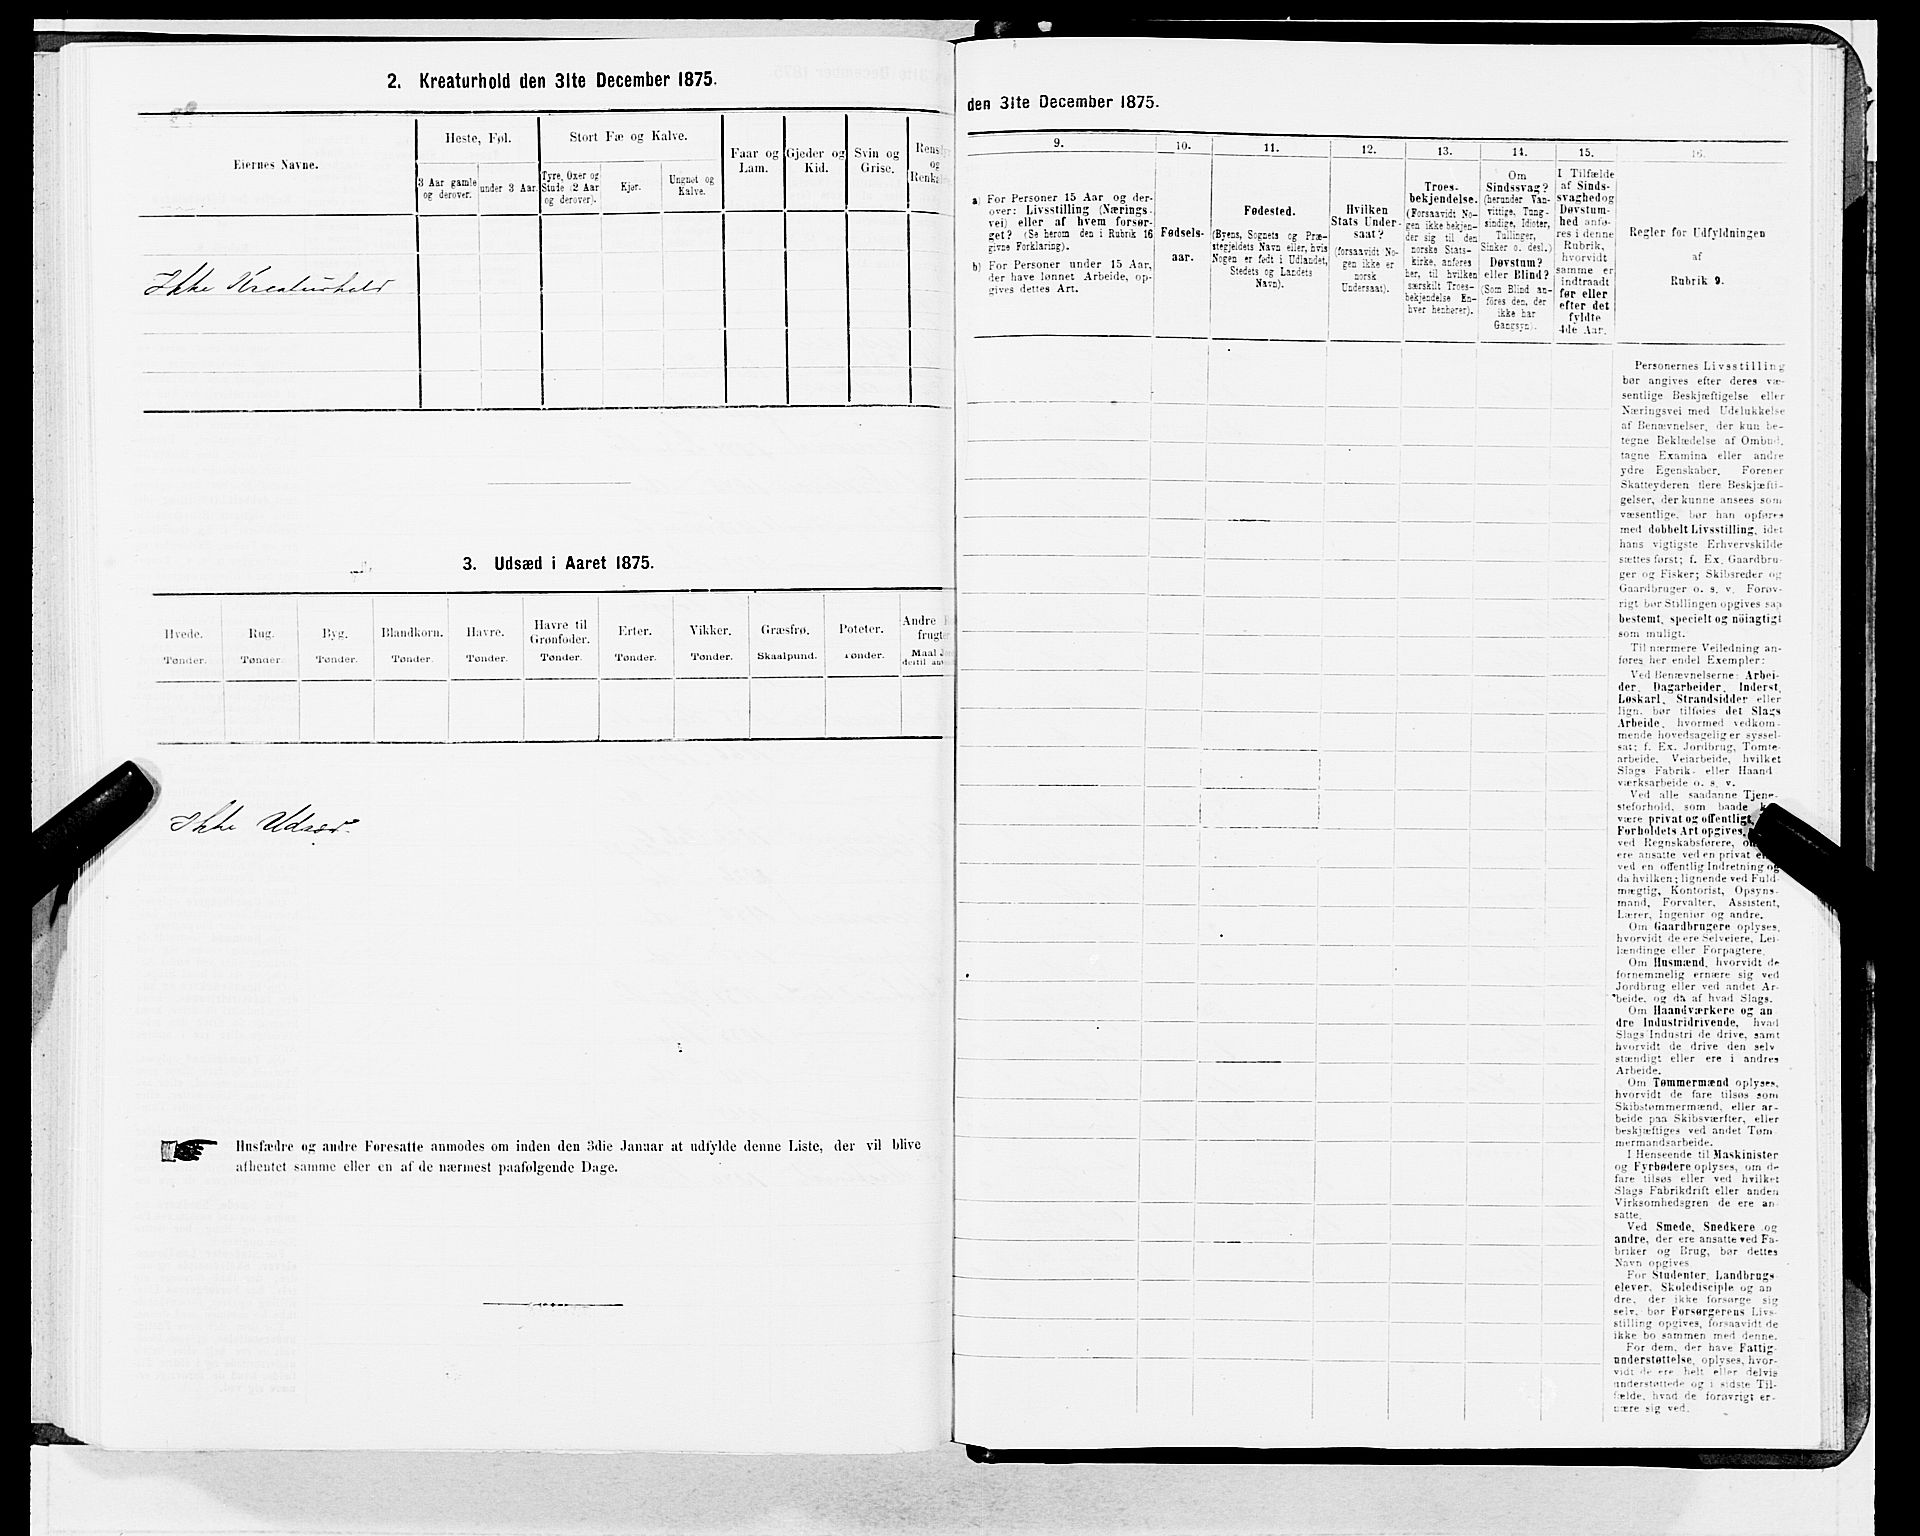 2. Kreaturhold den 31te December 1875.
Eiernes Navne.
Heste, Føl.
Stort Fæ og Kalve.
Faar og
Lam.
Gjeder og
Kid.
Svin og
Grise.
Rensdyr
og
3 Aar gamle
og derover.
under 3 Aar.
Tyre, Oxer og
Stude (2 Aar
og derover).
Kjør.
Ungnøt og
Kalve.
Ikke Kreaturhold
3. Udsæd i Aaret 1875.
Hvede.
Rug.
Byg.
Blandkorn.
Havre.
Havre til
Grønfoder.
Erter.
Vikker.
Græsfrø.
Poteter.
Andre
frugter
Tønder.
Tønder.
Tønder.
Tønder.
Tønder.
Tønder.
Tønder.
Tønder.
Skaalpund.
Tønder.
Maal
Ikke Udsæd.
Husfædre og andre Foresatte anmodes om inden den 3die Januar at udfylde denne Liste, der vil blive
afhentet samme eller en af de nærmest paafølgende Dage.
den 31te December 1875.
9.
10.
11.
12.
13.
14.
15.
16.
a) For Personer 15 Aar og der-
over: Livsstilling (Nærings-
vei) eller af hvem forsør-
get? (Se herom den i Rubrik 16
givne Forklaring).
b) For Personer under 15 Aar,
der have lønnet Arbeide, op-
gives dettes Art.
Fødsels-
aar.
Fødested.
(Byens, Sognets og Præ-
stegjeldets Navn eller, hvis
Nogen er født i Udlandet,
Stedets og Landets
Navn).
Hvilken
Stats Under-
saat?
(forsaavidt No-
gen ikke er
norsk
Undersaat).
Troes-
bekjendelse.
(Forsaavidt No-
gen ikke bekjen-
der sig til den
norske Stats-
kirke, anføres
her, til hvilken
særskilt Troes-
bekjendelse En-
hver henhører).
Om
Sindssvag?
(herunder Van-
vittige, Tung-
sindige, Idioter,
Tullinger,
Sinker o. desl.)
Døvstum?
eller Blind?
(Som Blind an-
föres den, der
ikke har
Gangsyn).
I Tilfælde
af Sinds-
svaghed og
Døvstum-
hed anfø-
res i denne
Rubrik,
hvorvidt
samme er
indtraadt
før eller
efter det
fyldte
4de Aar.
Regler for Udfyldningen
af
Rubrik 9.
Personernes Livsstilling
bør angives efter deres væ-
sentlige Beskjæftigelse eller
Næringsvei med Udelukkelse
af Benævnelser, der kun be-
tegne Beklædelse af Ombud,
tagne Examina eller andre
ydre Egenskaber. Forener
Skatteyderen flere Beskjæfti-
gelser, der kunne ansees som
væsentlige, bør han opføres
med dobbelt Livsstilling, idet
hans vigtigste Erhvervskilde
sættes først; f. Ex. Gaardbru-
ger og Fisker; Skibsreder og
Gaardbruger o. s. v. Forøv-
rigt bør Stillingen opgives saa
bestemt, specielt og nöiagtigt
som muligt.
Til nærmere Veiledning an-
føres her endel Exempler:
Ved Benævnelserne: Arbei-
der, Dagarbeider, Inderst,
Løskarl, Strandsidder eller
lign. bør tilføies det Slags
Arbeide, hvormed vedkom-
mende hovedsagelig er syssel-
sat; f. Ex. Jordbrug, Tomte-
arbeide, Veiarbeide, hvilket
Slags Fabrik- eller Haand-
værksarbeide o. s. v.
Ved alle saadanne Tjene-
steforhold, som baade
være privat og offentligt,
Forholdets Art opgives,
ved Regnskabsførere,
ere ansatte ved en privat
ved en offentlig Indretning og
da hvilken; lignende ved Fuld-
mægtig, Kontorist, Opsyns-
mand, Forvalter, Assistent,
Lærer, Ingeniør og andre.
Om Gaardbrugere oplyses,
hvorvidt de ere Selveiere, Lei-
lændinge eller Forpagtere.
Om Husmænd, hvorvidt de
fornemmelig ernære sig ved
Jordbrug eller ved andet Ar-
beide, og da af hvad Slags.
Om Haandværkere og an
dre Industridrivende, hvad
Slags Industri de drive, samt
hvorvidt de drive den selv
stændigt eller ere i andres
Arbeide.
Om Tømmermænd oplyses,
hvorvidt de fare tilsøs som
Skibstømmermænd, eller ar-
beide paa Skibsværfter, eller
beskjæftiges ved andet Tøm
mermandsarbeide.
I Henseende til Maskinister
og Fyrbødere oplyses, om de
fare tilsøs eller ved hvilket
Slags Fabrikdrift eller anden
Virksomhedsgren de ere an-
satte.
Ved Smede, Snedkere og
andre, der ere ansatte ved Fa-
briker og Brug, bør dettes
Navn opgives.
For Studenter, Landbrugs-
elever, Skoledisciple og an
dre, der ikke forsørge sig
selv, bør Forsørgerens Livs-
stilling opgives, forsaavidt de
ikke bo sammen med denne.
For dem, der have Fattig-
understøttelse, oplyses, hvor-
vidt de ere helt eller delvis
understøttede og i sidste Til-
fælde, hvad de forøvrigt er-
nære sig ved.